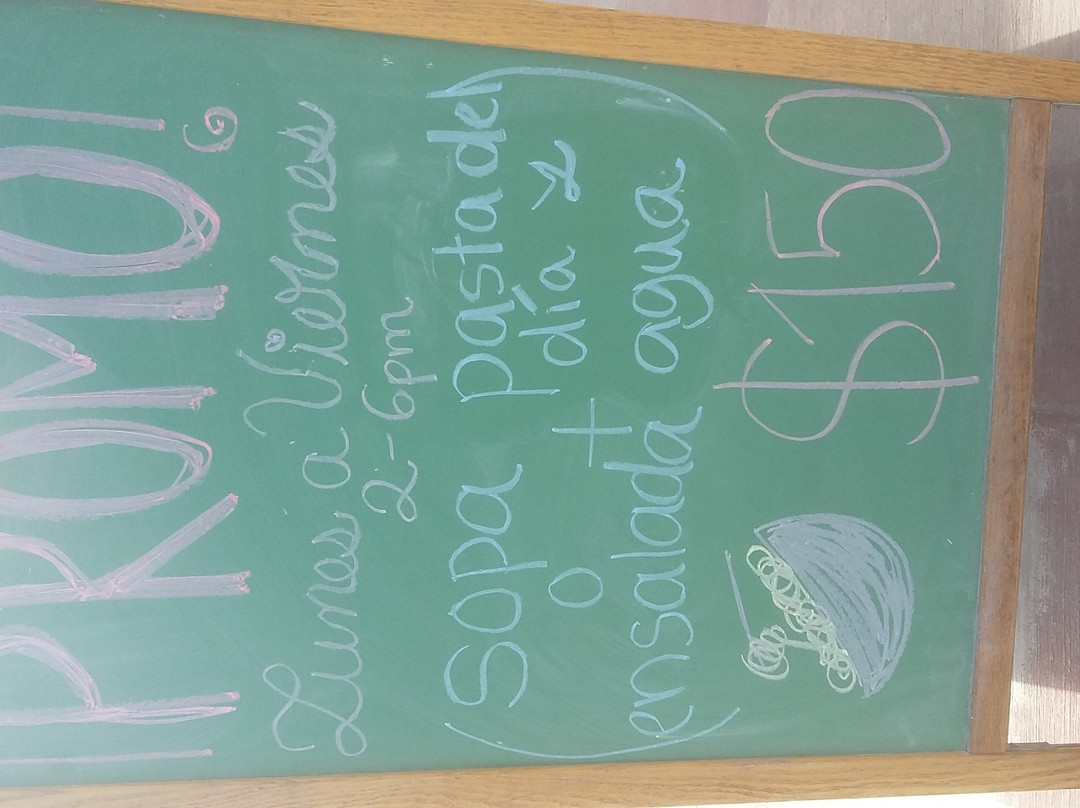 ¡PROMO!
Lunes a Viernes
2-6pm
(Sopa pasta del
o + día y
ensalada agua)
$150